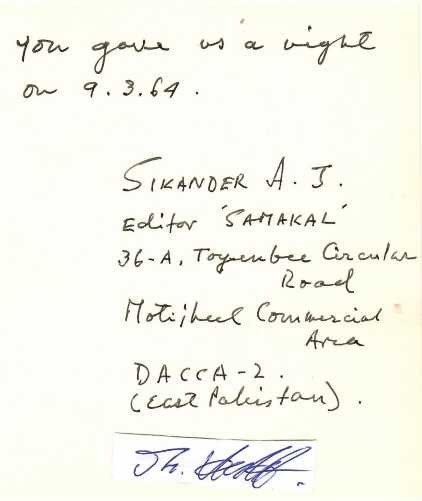 You gave us a night
on 9.3.64.
SIKANDER A. J.
Editor 'SAMAKAL'
36-A, Toyenbee Circular
Road
Motijheel Commercial
Area
DACCA-2.
(East Pakistan).
Th.